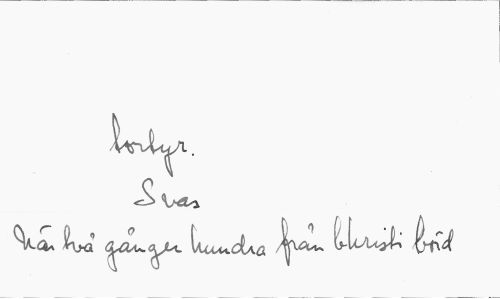 tortyr.
Svas
När två gånger hundra från Christi böd